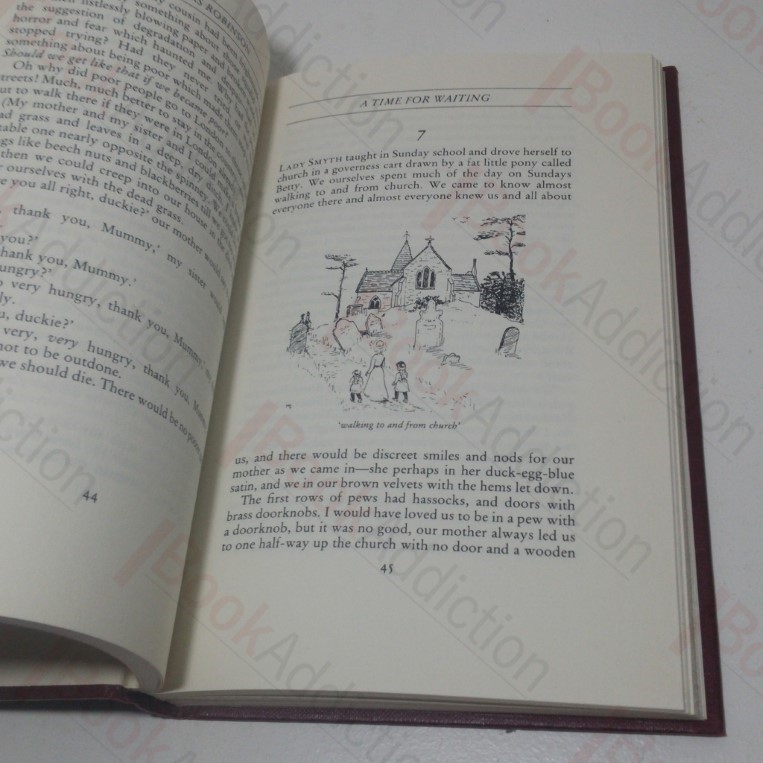 S ROBINSON
cousin had been
listlessly blowing paper and
the suggestion of degradation and
horror and fear which haunted me. Why had
stopped trying? Had they never tried? Was
something about being poor which made
Should we get like that if we became poor?
Oh why did poor people go to London
treets! Much, much better to stay in the
ut to walk there if they were in London
(My mother and my sister and I
d grass and leaves in a deep, dry
table one nearly opposite the spinney. We
gs like beech nuts and blackberries till
then we could creep into our house
r ourselves with the dead grass.
e you all right, duckie?' our mother would
, thank you, Mummy,' my sister would
you?'
hank you, Mummy.'
ungry?'
very hungry, thank you, Mummy,'
ly.
u, duckie?'
very, very hungry, thank you, Mummy,
not to be outdone.
we should die. There would be no
44
A TIME FOR WAITING
7
LADY SMYTH taught in Sunday school and drove herself to
church in a governess cart drawn by a fat little pony called
Betty. We ourselves spent much of the day on Sundays
walking to and from church. We came to know almost
everyone there and almost everyone knew us and all about
'walking to and from church'
us, and there would be discreet smiles and nods for our
mother as we came in—she perhaps in her duck-egg-blue
satin, and we in our brown velvets with the hems let down.
The first rows of pews had hassocks, and doors with
brass doorknobs. I would have loved us to be in a pew with
a doorknob, but it was no good, our mother always led us
to one half-way up the church with no door and a wooden
45
BookAddiction